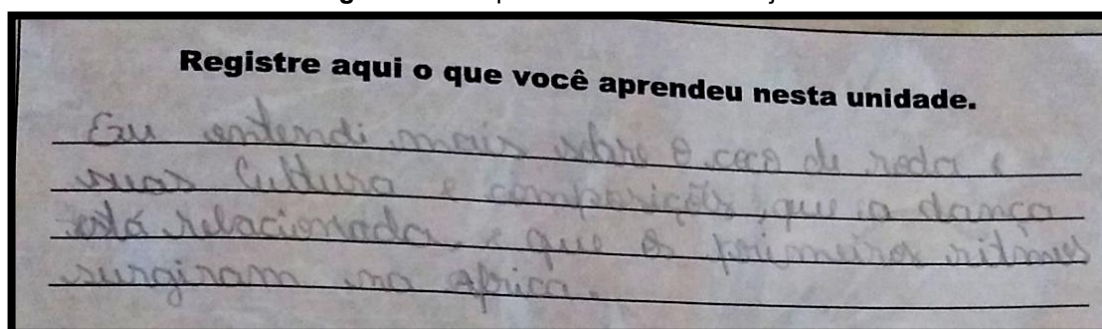 Registre aqui o que você aprendeu nesta unidade.
Eu entendi mais sobre o coco de roda e
suas Cultura e composições, que a dança
está relacionada, e que os primeiros ritmos
surgiram na Africa.